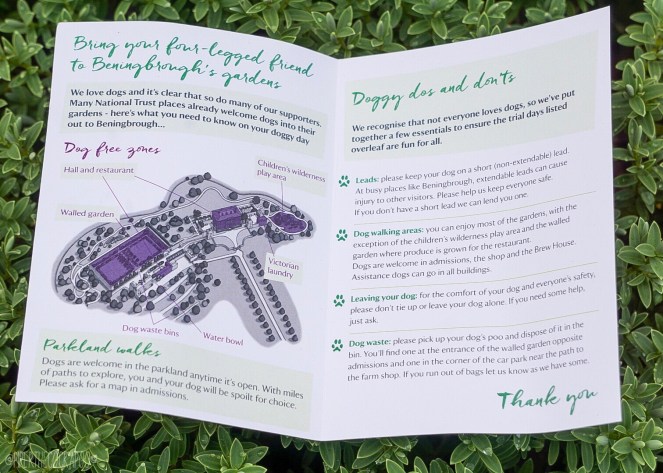 Bring your four-legged friend
to Beningbrough's gardens
We love dogs and it's clear that so do many of our supporters.
Many National Trust places already welcome dogs into their
gardens - here's what you need to know on your doggy day
out to Beningbrough...
Dog free zones
Hall and restaurant
Children's wilderness
play area
Walled garden
Victorian
laundry
Dog waste bins
Water bowl
Parkland walks
Dogs are welcome in the parkland anytime it's open. With miles
of paths to explore, you and your dog will be spoilt for choice.
Please ask for a map in admissions.
Doggy dos and don'ts
We recognise that not everyone loves dogs, so we've put
together a few essentials to ensure the trial days listed
overleaf are fun for all.
Leads: please keep your dog on a short (non-extendable) lead.
At busy places like Beningbrough, extendable leads can cause
injury to other visitors. Please help us keep everyone safe.
If you don't have a short lead we can lend you one.
Dog walking areas: you can enjoy most of the gardens, with the
exception of the children's wilderness play area and the walled
garden where produce is grown for the restaurant.
Dogs are welcome in admissions, the shop and the Brew House.
Assistance dogs can go in all buildings.
Leaving your dog: for the comfort of your dog and everyone's safety,
please don't tie up or leave your dog alone. If you need some help,
just ask.
Dog waste: please pick up your dog's poo and dispose of it in the
bin. You'll find one at the entrance of the walled garden opposite
admissions and one in the corner of the car park near the path to
the farm shop. If you run out of bags let us know as we have some.
Thank you